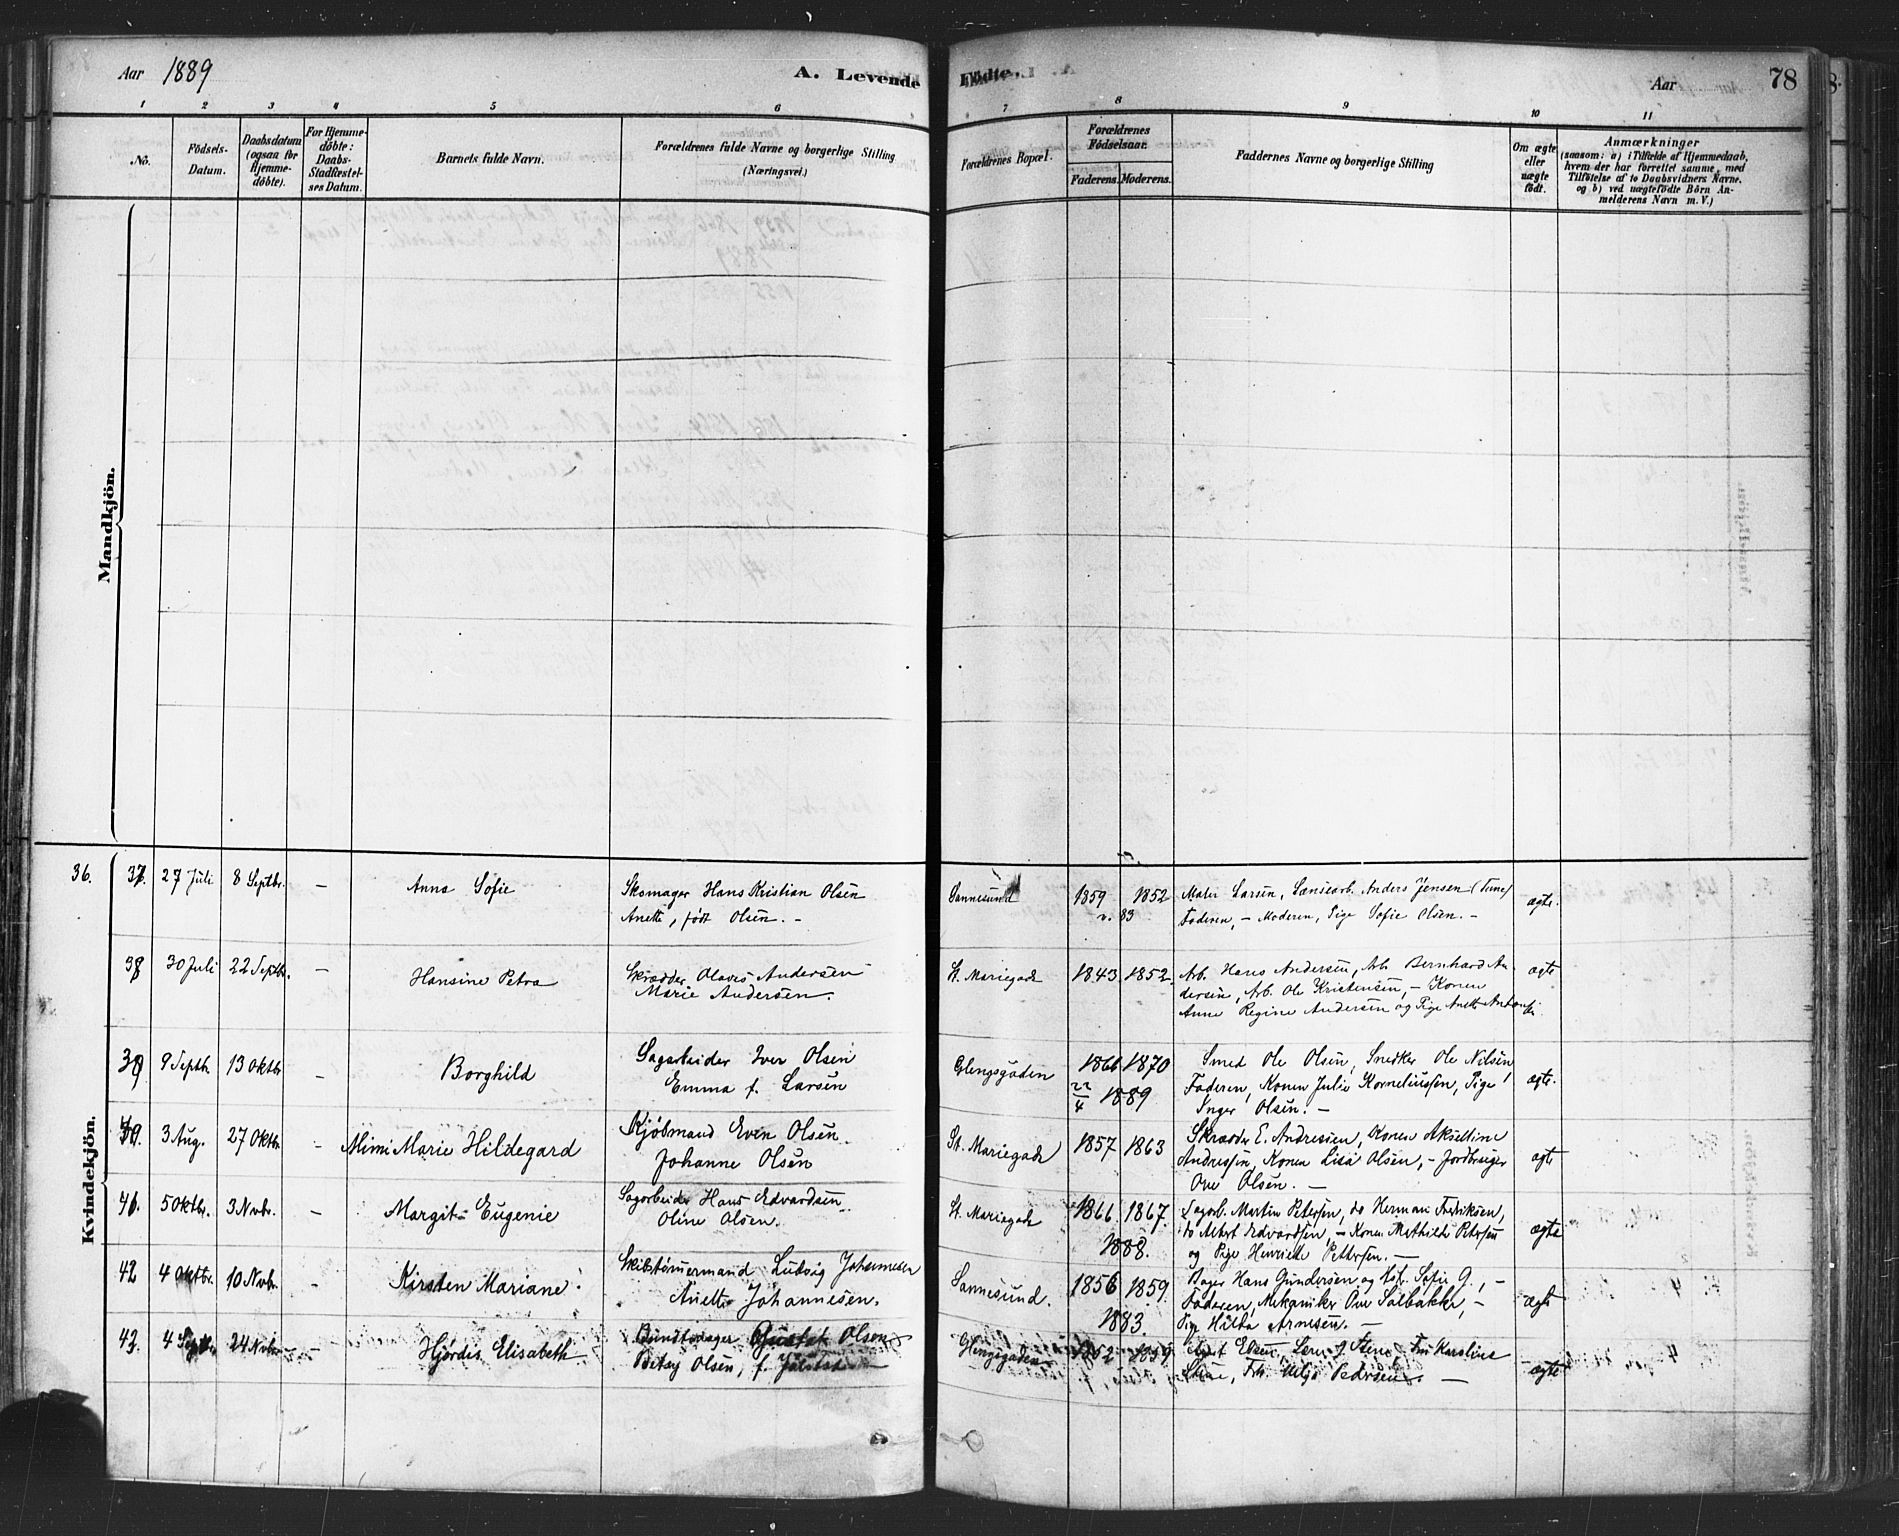 Aar 1889
A. Levende
Födte.
Aar
78
1 2 3 4 5 6 7 8 9 10 11
No.
Födsels-
Datum.
Daabsdatum
(ogsaa for
Hjemme-
döbte).
For Hjemme-
döbte:
Daabs-
Stadfæstel-
ses Datum.
Barnets fulde Navn.
Forældrenes fulde Navne og borgerlige Stilling
(Næringsvei.)
Forældrenes Bopæl.
Forældrenes
Födselsaar.
Faderens. Moderens.
Faddernes Navne og borgerlige Stilling
Om ægte
eller
uægte
födt.
Anmærkninger
(saasom: a) i Tilfælde af Hjemmedaab,
hvem der har forrettet samme, med
Tilföielse af to Daabsvidners Navne,
og b) ved uægtefödte Börn An-
melderens Navn m. V.)
Mandkjön.
Kvindekjön.
36. 37. 27 Juli 8 Septbr. — Anna Sofie
Skomager Hans Kristian Olsen
Anette, født Olsen. —
Sannesund 1859 1852
v. 83
Larsen, Anders Jensen (Tune)
Faderen, — Moderen, Pige Sofie Olsen. —
ægte.
38 30 Juli 22 Septbr. — Hansine Petra
Skrædder Olaves Andersen
Marie Andersen.
St. Mariegade 1843 1852.
Arb. Hans Andersen, Arb. Bernhard An-
dersen, Arb. Ole Kristensen, — Konen
Anne Regine Andersen og Pige Anette
ægte
39 9 Septb. 13 Oktbr — Borghild
Sagarbeider Iver Olsen
Emma f. Larsen
Glengsgaden 1866 1870
22/4 1889
Smed Ole Olsen, Snedker Ole Nilsen
Faderen, Konen Julie Korneliussen, Pige
Inger Olsen. —
ægte.
3 Aug. 27 Oktbr — Mimi Marie Hildegard
Kjøbmand Even Olsen
Johanne Olsen
St. Mariegade 1857 1863
Skrædder E. Andresen, Konen Akseltine
Andresen, Konen Lisa Olsen, — Jordbruger
Ove Olsen. —
ægte
41. 5 Oktbr. 3 Nvbr. — Margit Eugenie
Sagarbeider Hans Edvardsen
Oline Olsen.
St. Mariegade 1866 1867
1888.
Sagarb. Martin Petersen, do Herman Fredriksen,
do Albert Edvardsen, — Konen Mathilde Petersen
og Pige Henriette Pettersen. —
ægte
42 4 Oktbr. 10 Nvbr. — Kirsten Mariane
Skibstømmermand Ludvig Johannesen
Anette Johannesen.
Sannesund. 1856 1859
1883.
Bager Hans Gundersen og Hst. Sofie G., —
Faderen, Mekaniker Ove Solbakke, —
Pige Hilda Arnesen. —
ægte
43. 4 24 Nvbr — Hjørdis Elisabeth
Buntmager Gustav Olsen
Betsy Olsen, f.
Glengsgaden 1852 1859
Fru Karoline
Stene, Frk. Helga Pedersen. —
ægte